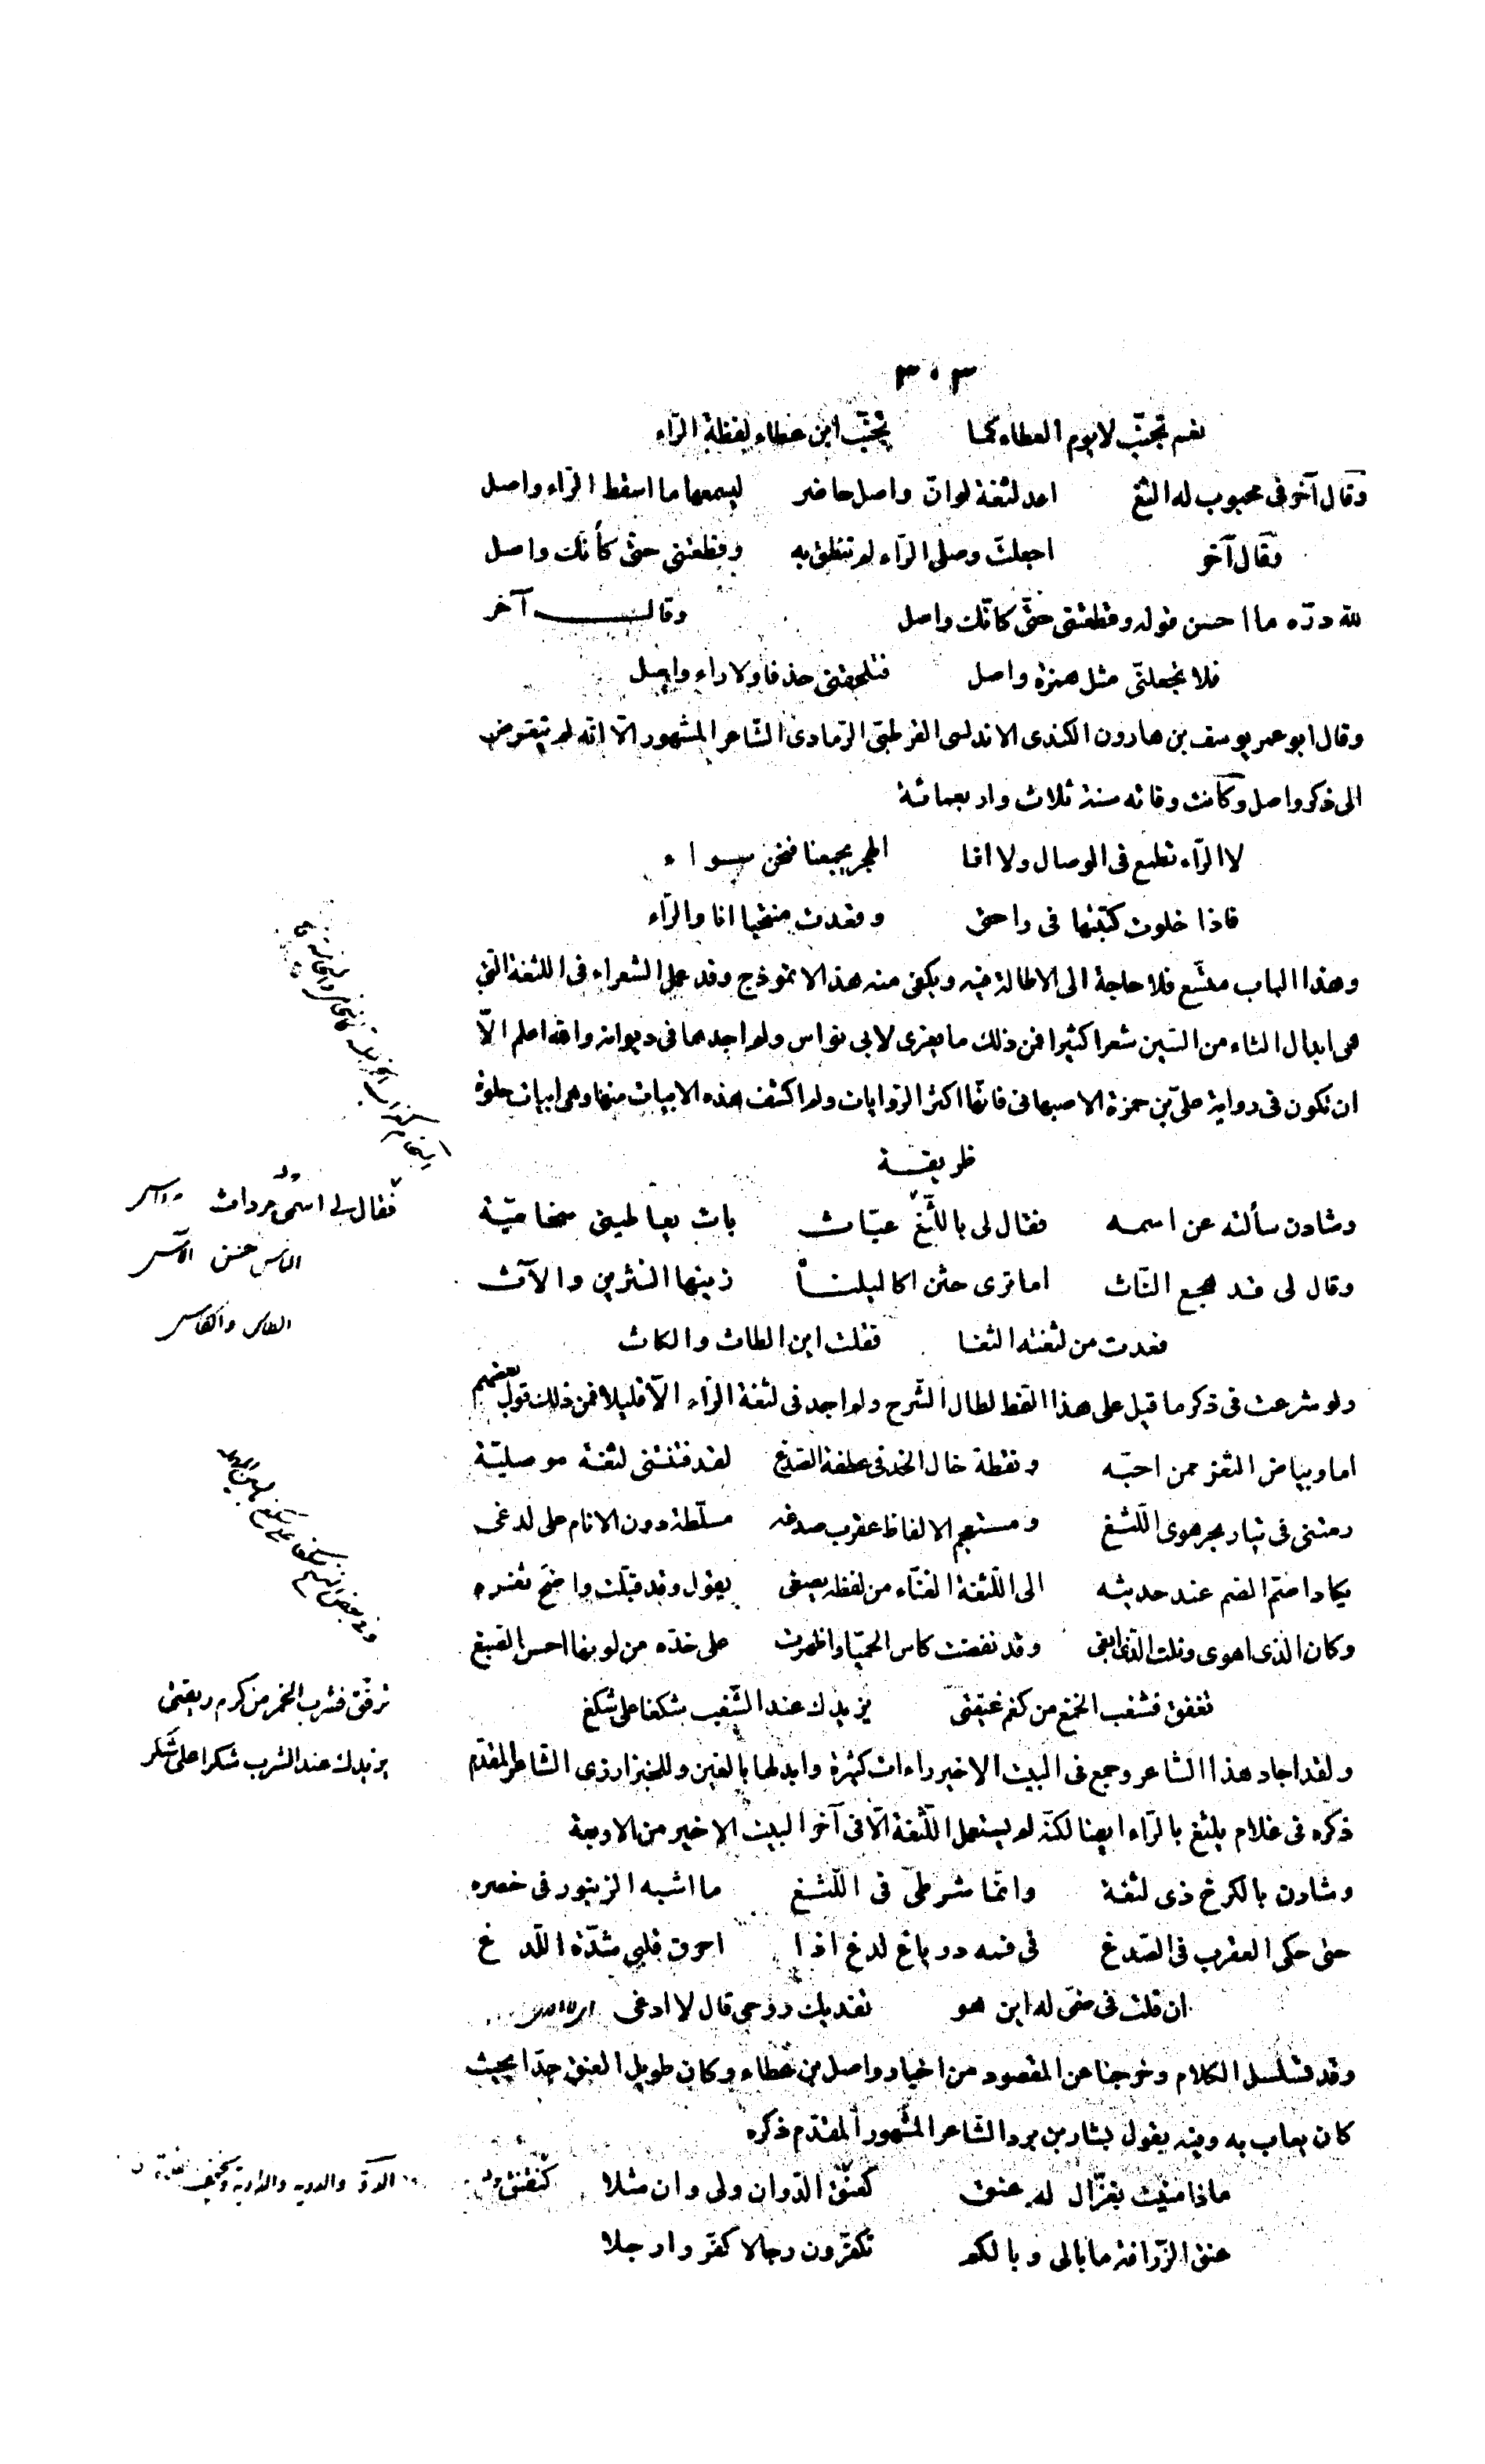 ٣٠٣
نعم تجنّب لا يوم العطاء كما تجنّب ابن عطاء لفظة الرّاء
وقال آخر فى محبوب له الثغ اعد لثغة لو انّ واصل حاضر ليسمعها ما اسقط الرّاء واصل
وقال آخر اجعلت وصلى الرّاء لم تنطق به وقطعتنى حتى كأنك واصل
لله درّه ما احسن قوله وقطعتنى حتّى كانّك واصل وقال آخر
فلا تجعلنّى مثل همزة واصل فتلحقنى حذفا ولا راء واصل
وقال ابو عمر يوسف بن هارون الكندى الاندلسى القرطبىّ الرّمادى الشّاعر المشهور الّا انّه لم يتعرض
الى ذكر واصل وكانت وفاته سنة ثلاث واربعمائة
لا الرّاء تطمع فى الوصال ولا انا الهجر يجمعنا فنحن سواء
فاذا خلوت كتبتها فى راحتى وقعدت منتحبا انا والرّاء
وهذا الباب متّسع فلا حاجة الى الاطالة فيه ويكفى منه هذا الانموذج وقد عمل الشعراء فى اللثغة التى
هى ابدال الثاء من السّين شعرا كثيرا فمن ذلك ما يعزى لابى نواس ولم اجدها فى ديوانه والله اعلم الّا
ان تكون فى رواية علىّ بن حمزة الاصبهانى فانّها اكثر الرّوايات ولم اكشف هذه الابيات منها وهى ابيات حلوة
ظريفة
وشادن سألته عن اسمه فقال لى باللّثغ عبّاث بات يعاطينى سخاميّة
وقال لى قد هجع النّاث اما ترى حثن اكاليلنا زينها النثرين والآث
فعدت من لثغته الثغا فقلت اين الطاث والكاث
ولو شرعت فى ذكر ما قيل على هذا النّمط لطال الشّرح ولم اجد فى لثغة الرّاء الّا قليلا فمن ذلك قول بعضهم
اما وبياض الثغر ممن احبّه ونقطة خال الخد فى عطفة الصّدغ لقد فتنتنى لثغة موصليّة
رمتنى فى تيار بحر هوى اللّثغ ومستعجم الالفاظ عقرب صدغه مسلّطة دون الانام على لدغى
يكاد اصمّ الصم عند حديثه الى اللّثغة الغنّاء من لفظه يصغى يقول وقد قبّلت واضح ثغره
وكان الذى اهوى ونلت الّذى ابغى وقد نفضت كاس الحميّا واظهرت على خدّه من لونها احسن الصّبغ
تغفق فشغب الخمغ من كغم غيقتى يزيدك عند الشّغب سكغا على سكغ
ولقد اجاد هذا الشاعر وجمع فى البيت الاخير راءات كثيرة وابدلها بالغين وللخبزارزى الشاعر المقدّم
ذكره فى غلام يلثغ بالرّاء ايضا لكنّه لم يستعمل اللّثغة الّا فى آخر البيت الاخير من الاربعة
وشادن بالكرخ ذى لثغة وانّما شرطىّ فى اللّثغ ما اشبه الزنبور فى خصره
حتى حكى العقرب فى الصّدغ فى فمه درياغ لدغ اذا احرق قلبى شدّة اللّدغ
ان قلت فى ضمّى له اين هو تفديك روحى قال لا ادغى
وقد تسلسل الكلام وخرجنا عن المقصود من اخبار واصل بن عطاء وكان طويل العنق جدّا بحيث
كان يعاب به وفيه يقول بشار بن برد الشاعر المشهور المقدّم ذكره
ماذا منيت بغزّال له عنق كعنق الدّوان ولى وان مثلا كنقنق
عنق الزّرافة ما بالى وبالكم تكفّرون رجالا كفّروا رجلا
فقال لى اسمى مرداث
الناس حسن الآس
الطاس والكاس
ترفّق فشرب الخمر من كرم ريقتى
يزيدك عند الشرب سكرا على سكر